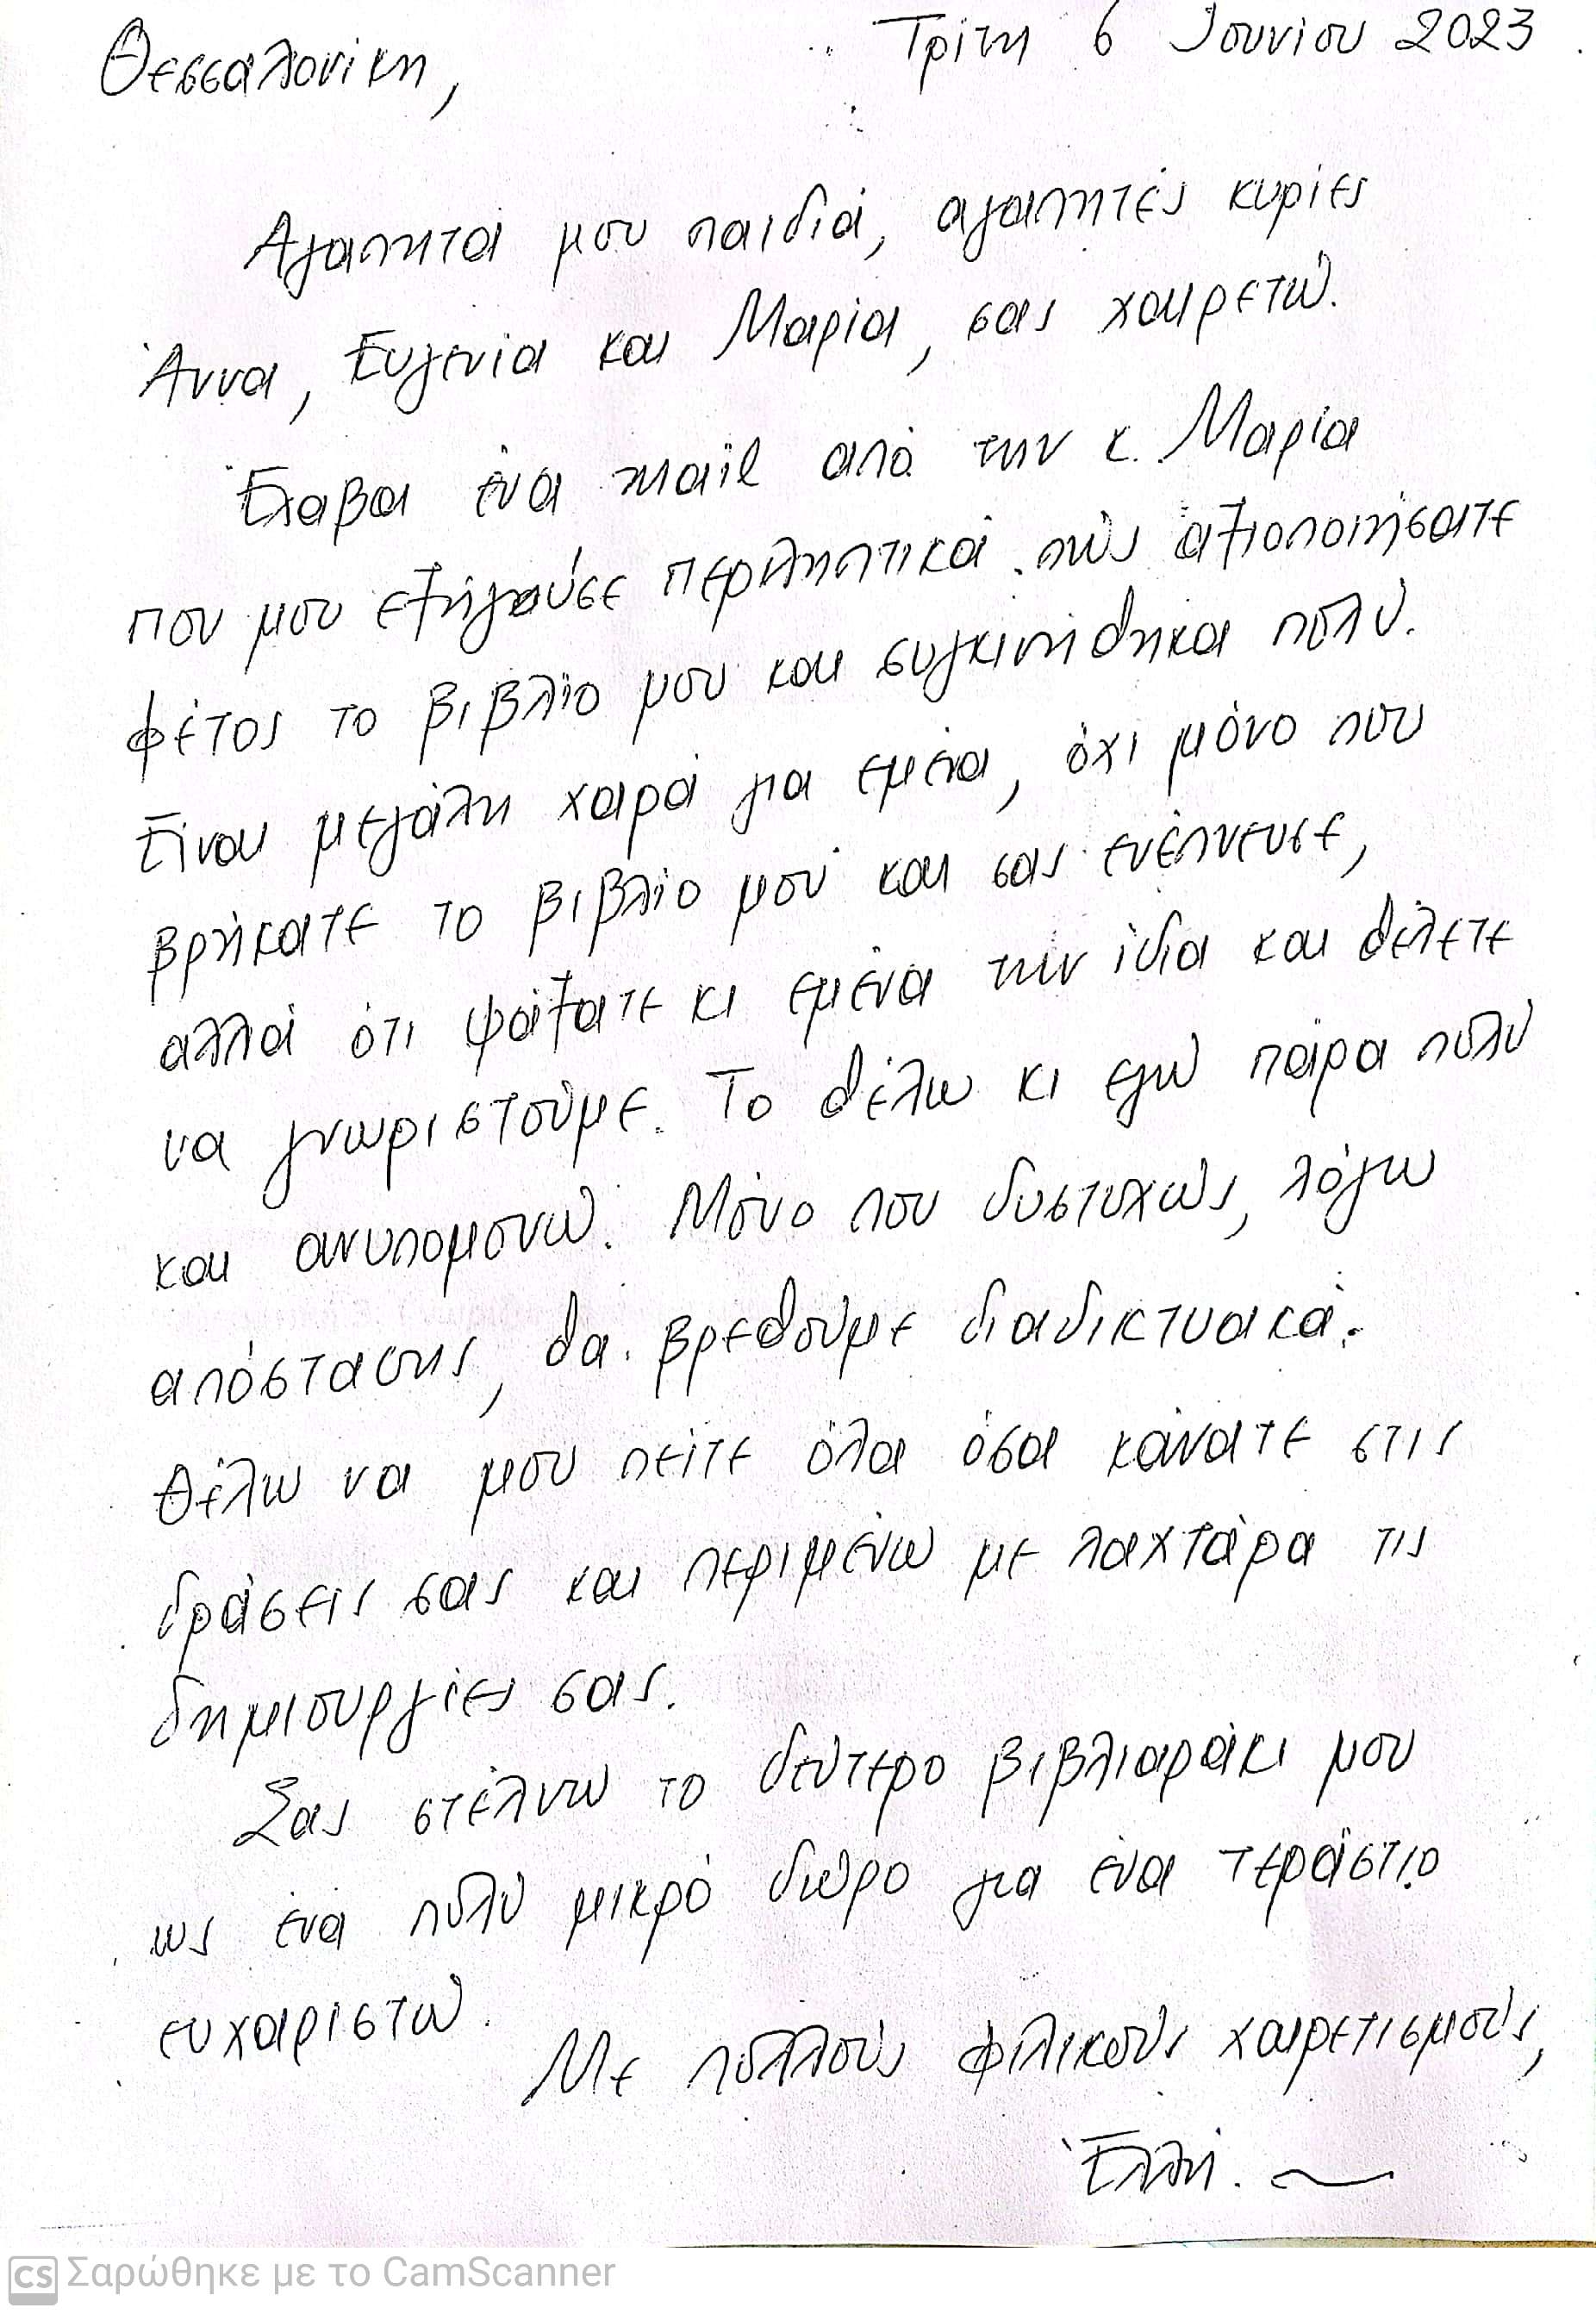 Θεσσαλονίκη, Τρίτη 6 Ιουνίου 2023
Αγαπητά μου παιδιά, αγαπητές κυρίες
Άννα, Ευγενία και Μαρία, σας χαιρετώ.
Έλαβα ένα mail από την κ. Μαρία
που μου εξηγούσε περιληπτικά πώς αξιοποιήσατε
φέτος το βιβλίο μου και συγκινήθηκα πολύ.
Είναι μεγάλη χαρά για εμένα, όχι μόνο που
βρήκατε το βιβλίο μου και σας ενέπνευσε,
αλλά ότι ψάξατε κι εμένα την ίδια και θέλετε
να γνωριστούμε. Το θέλω κι εγώ πάρα πολύ
και ανυπομονώ. Μόνο που δυστυχώς, λόγω
απόστασης, θα βρεθούμε διαδικτυακά.
Θέλω να μου πείτε όλα όσα κάνατε στις
δράσεις σας και περιμένω με λαχτάρα τις
δημιουργίες σας.
Σας στέλνω το δεύτερο βιβλιαράκι μου
ως ένα πολύ μικρό δώρο για ένα τεράστιο
ευχαριστώ.
Με πολλούς φιλικούς χαιρετισμούς,
Έλλη.
CS Σαρώθηκε με το CamScanner